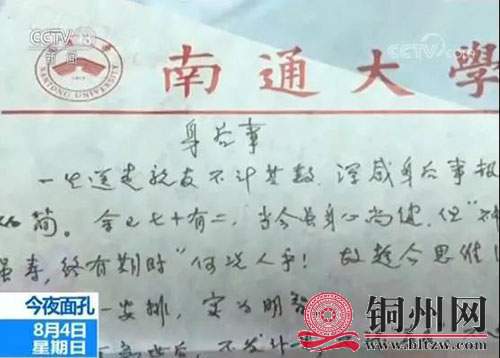 CCTV 13
新闻
NANTONG UNIVERSITY
南通大學
身后事
一生送走亲友不计其数，深感身后事
简。余已七十有二，当今虽身心尚健，但"
虽寿，终有期时"何况人乎！故趁今思维
一安排，实为明智
今夜面孔
8月4日
星期日
铜州网
www.bltzw.com